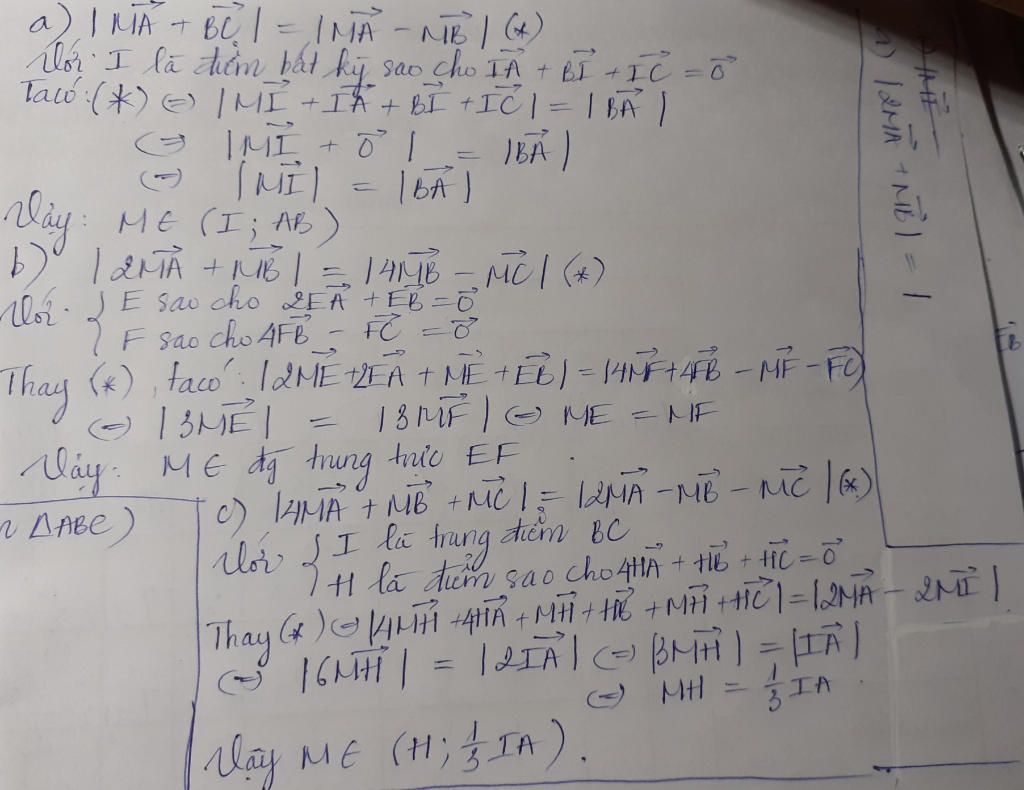 a) |MA→ + BC→| = |MA→ - MB→| (*)
Với: I là điểm bất kỳ sao cho IA→ + BI→ + IC→ = 0→
Ta có: (*) ⇔ |MI→ + IA→ + BI→ + IC→| = |BA→|
⇔ |MI→ + 0→| = |BA→|
⇔ |MI→| = |BA→|
Vậy: M ∈ (I; AB)
b) |2MA→ + MB→| = |4MB→ - MC→| (*)
Với: { E sao cho 2EA→ + EB→ = 0→
F sao cho 4FB→ - FC→ = 0→
Thay (*), ta có: |2ME→ + 2EA→ + ME→ + EB→| = |4MF→ + 4FB→ - MF→ - FC→|
⇔ |3ME→| = |3MF→| ⇔ ME = MF
Vậy: M ∈ đg trung trực EF.
c) |4MA→ + MB→ + MC→| = |2MA→ - MB→ - MC→| (*)
Với { I là trung điểm BC
H là điểm sao cho 4HA→ + HB→ + HC→ = 0→
Thay (*) ⇔ |4MH→ + 4HA→ + MH→ + HB→ + MH→ + HC→| = |2MA→ - 2MI→|
⇔ |6MH→| = |2IA→| ⇔ |3MH→| = |IA→|
⇔ MH = 1/3 IA.
Vậy M ∈ (H; 1/3 IA).
ΔABC)
|2MA→ + MB→| = |